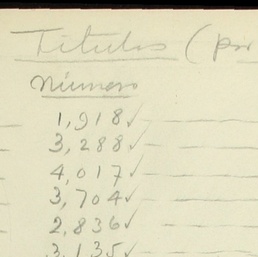 Titulos (por
número
1,918✓
3,288✓
4,017✓
3,704✓
2,836✓
3,135✓